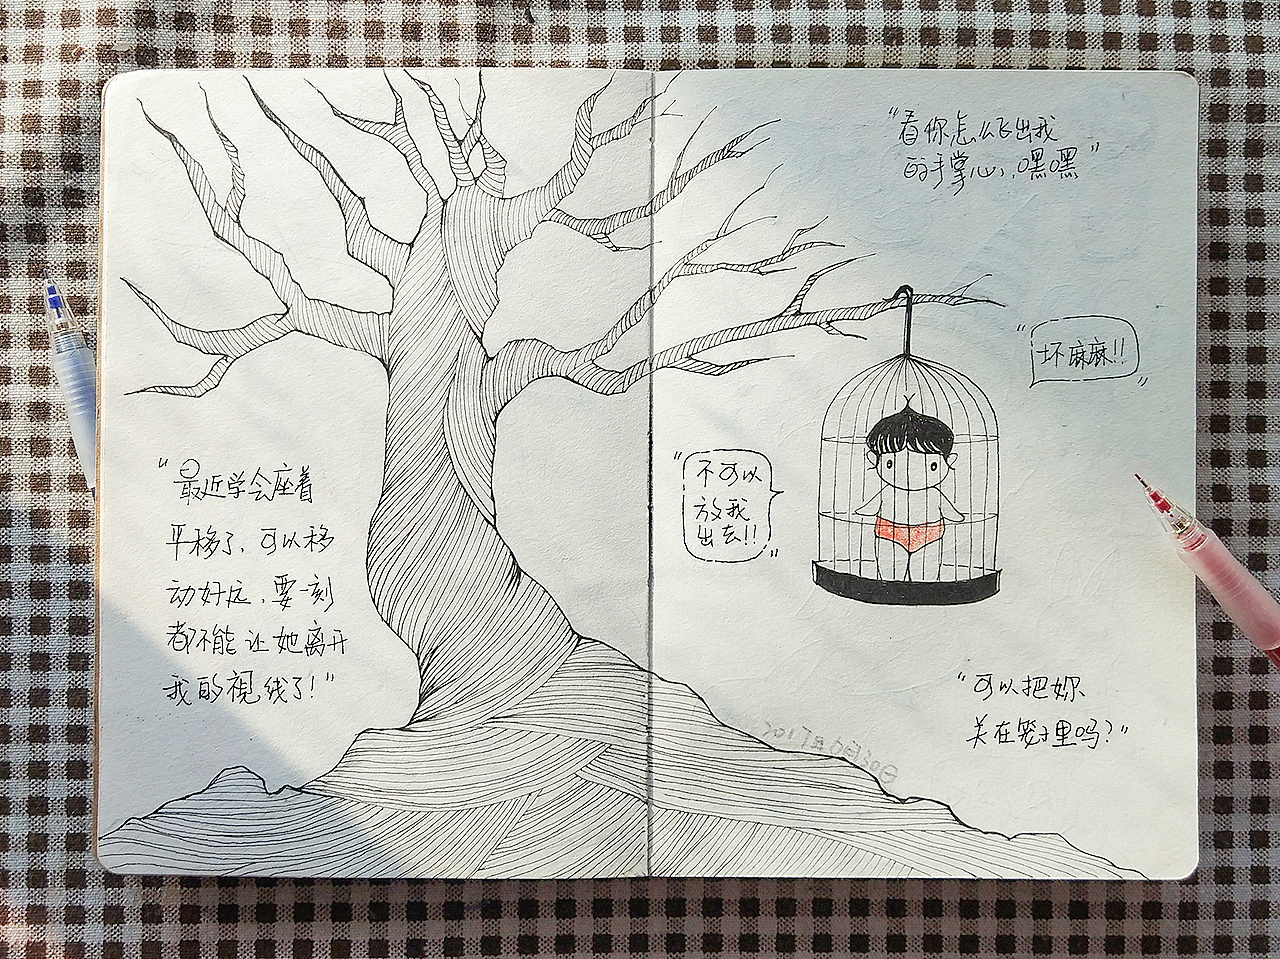 “最近学会座着
平移了，可以移
动好远，要一刻
都不能让她离开
我的視线了！”
“看你怎么飞出我
的手掌心，嘿嘿”
“坏麻麻!!”
“不可以
放我
出去!!”
“可以把妳
关在笼子里吗？”